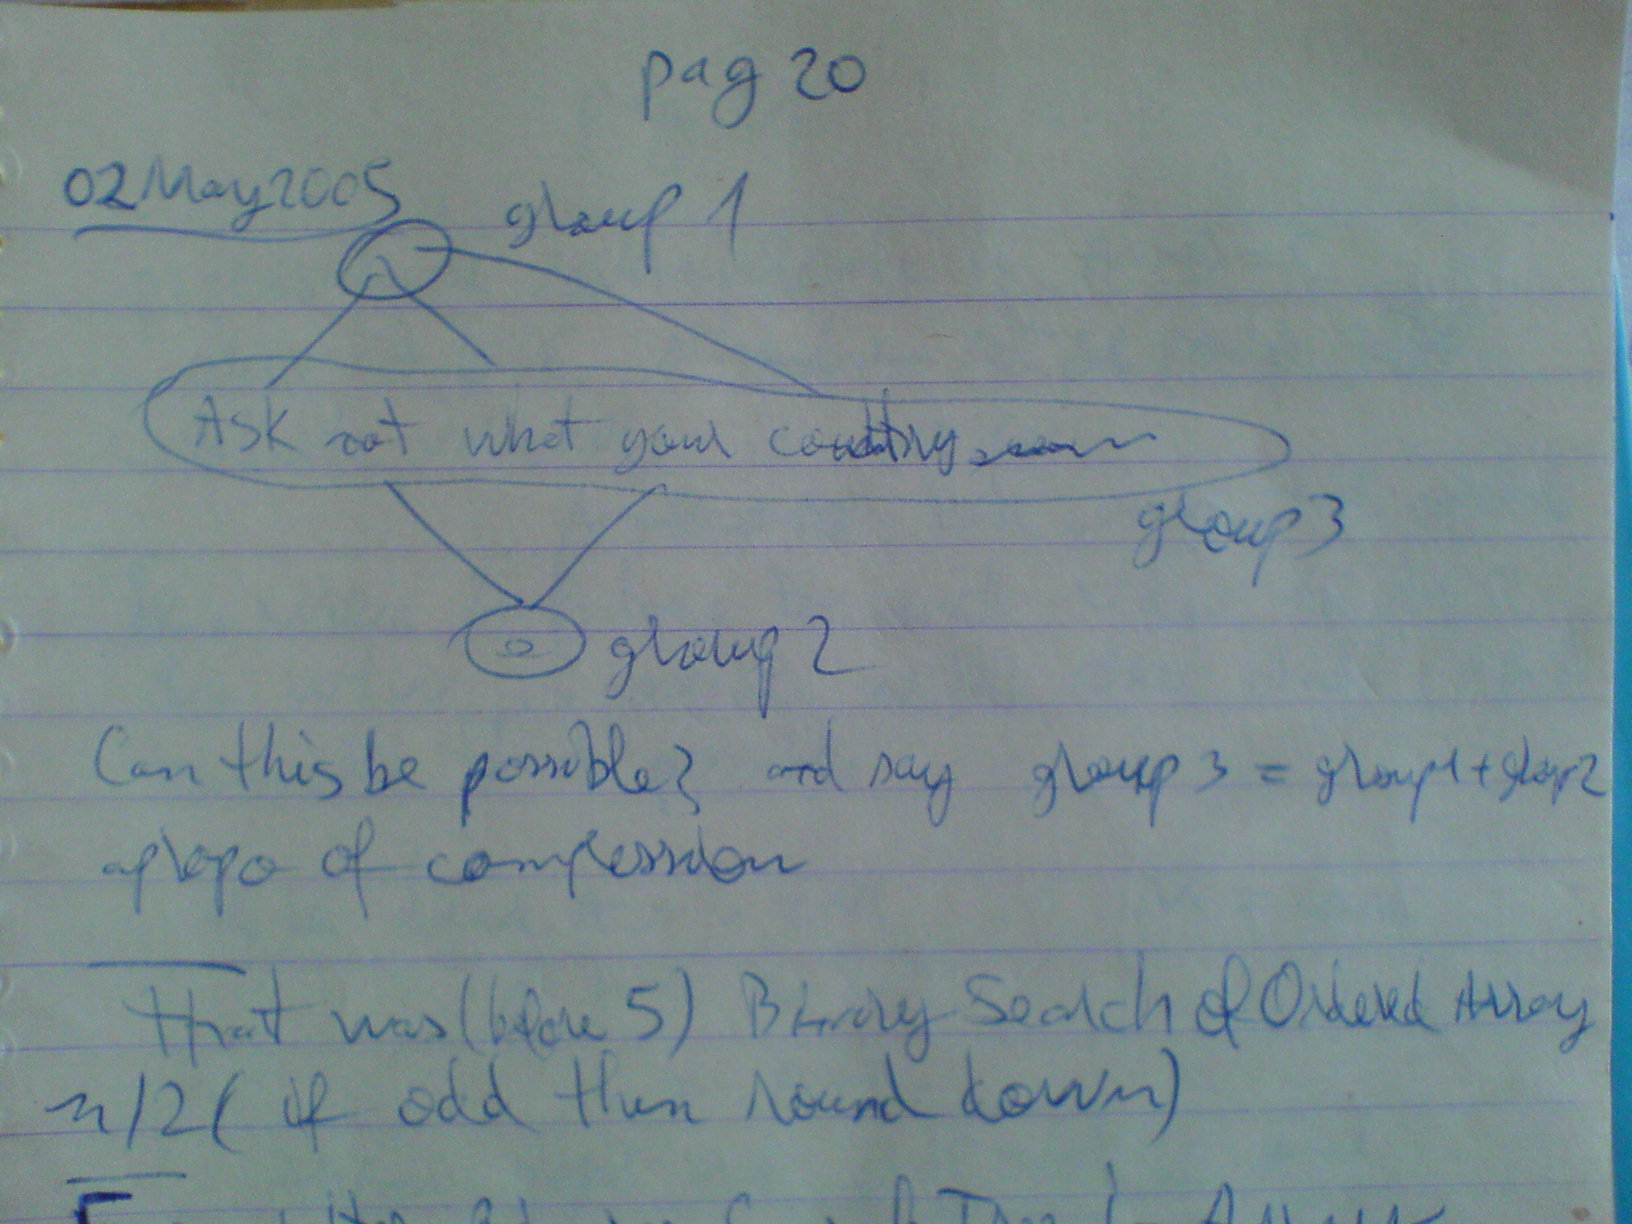 pag 20
02May2005
group 1
Ask not what your country
group 3
group 2
Can this be possible? and say group 3 = group1+group2
apropo of compression
That was (before 5) Binary Search of Ordered Array
n/2 ( if odd then round down)